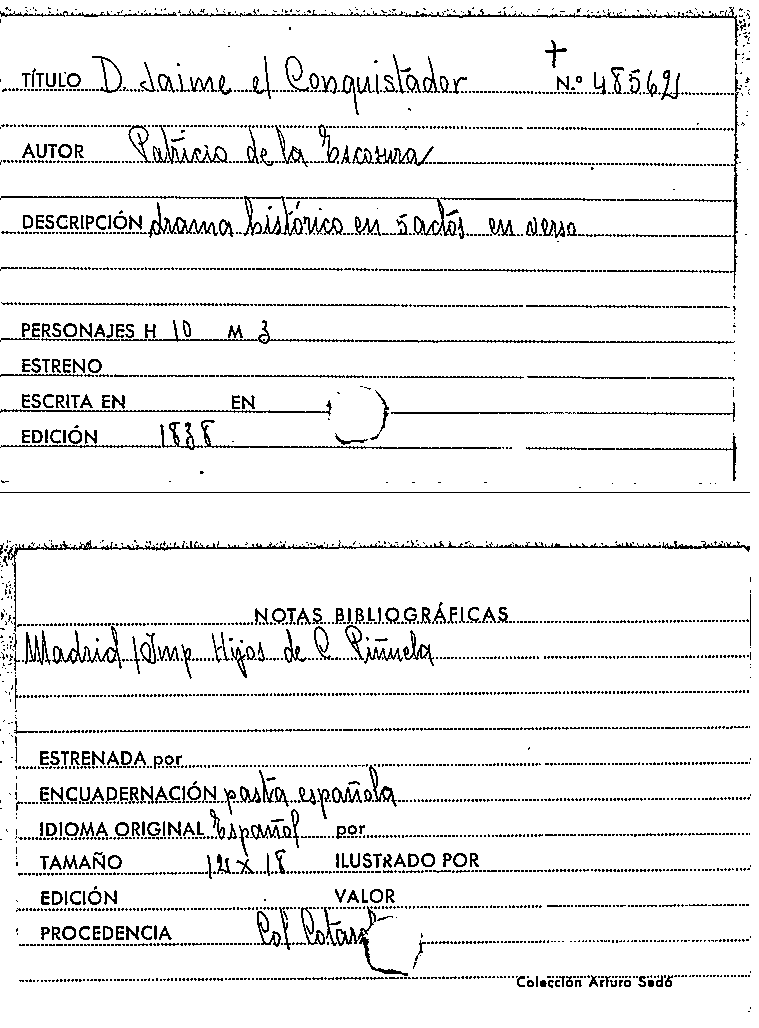 TÍTULO D. Jaime el Conquistador
+
N.º 48562
AUTOR Patricio de la Escosura
DESCRIPCIÓN drama histórico en 5 actos en verso
PERSONAJES H 10 M 3
ESTRENO
ESCRITA EN EN
EDICIÓN 1838
NOTAS BIBLIOGRÁFICAS
Madrid / Imp Hijos de C. Piñuela
ESTRENADA por
ENCUADERNACIÓN pasta española
IDIOMA ORIGINAL Español por
TAMAÑO 12 x 18 ILUSTRADO POR
EDICIÓN VALOR
PROCEDENCIA Col
Colección Arturo Sedó